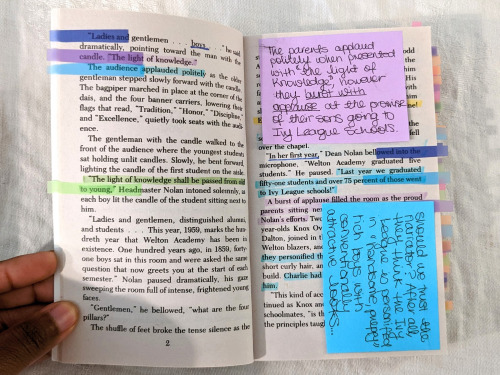 "Ladies and gentlemen . . . boys," he said
dramatically, pointing toward the man with the
candle. "The light of knowledge."
The audience applauded politely as the older
gentleman stepped slowly forward with the candle.
The bagpiper marched in place at the corner of the
dais, and the four banner carriers, lowering their
flags that read, "Tradition," "Honor," "Discipline,"
and "Excellence," quietly took seats with the audi-
ence.
The gentleman with the candle walked to the
front of the audience where the youngest students
sat holding unlit candles. Slowly, he bent forward,
lighting the candle of the first student on the aisle.
"The light of knowledge shall be passed from old
to young," Headmaster Nolan intoned solemnly as
each boy lit the candle of the student sitting next to
him.
"Ladies and gentlemen, distinguished alumni,
and students . . . This year, 1959, marks the hun-
dreth year that Welton Academy has been in
existence. One hundred years ago, in 1859, forty-
one boys sat in this room and were asked the same
question that now greets you at the start of each
semester." Nolan paused dramatically, his gaze
sweeping the room full of intense, frightened young
faces.
"Gentlemen," he bellowed, "what are the four
pillars?"
The shuffle of feet broke the tense silence as the
2
The parents applaud
politely when presented
with "the light of
knowledge", however
they burst with
applause at the promise
of their sons going to
Ivy League Schools.
odd
over the chapel.
"In her first year," Dean Nolan bellowed into the
microphone, "Welton Academy graduated five
students." He paused. "Last year we graduated
fifty-one students and over 75 percent of those went
to Ivy League schools!"
A burst of applause filled the room as the proud
parents sitting
Nolan's efforts. Two
year-olds Knox
Dalton, joined in
Welton blazers, and
they personified the
short curly hair, an
build. Charlie had
him.
"This kind of acc
tinued as Knox and
schoolmates, "is th
the principles taught
Should we trust the
narrator? After all,
they think the Ivy
League is personified
in 2 handsome, preppy
rich boys with
conventionally
attractive bodies...